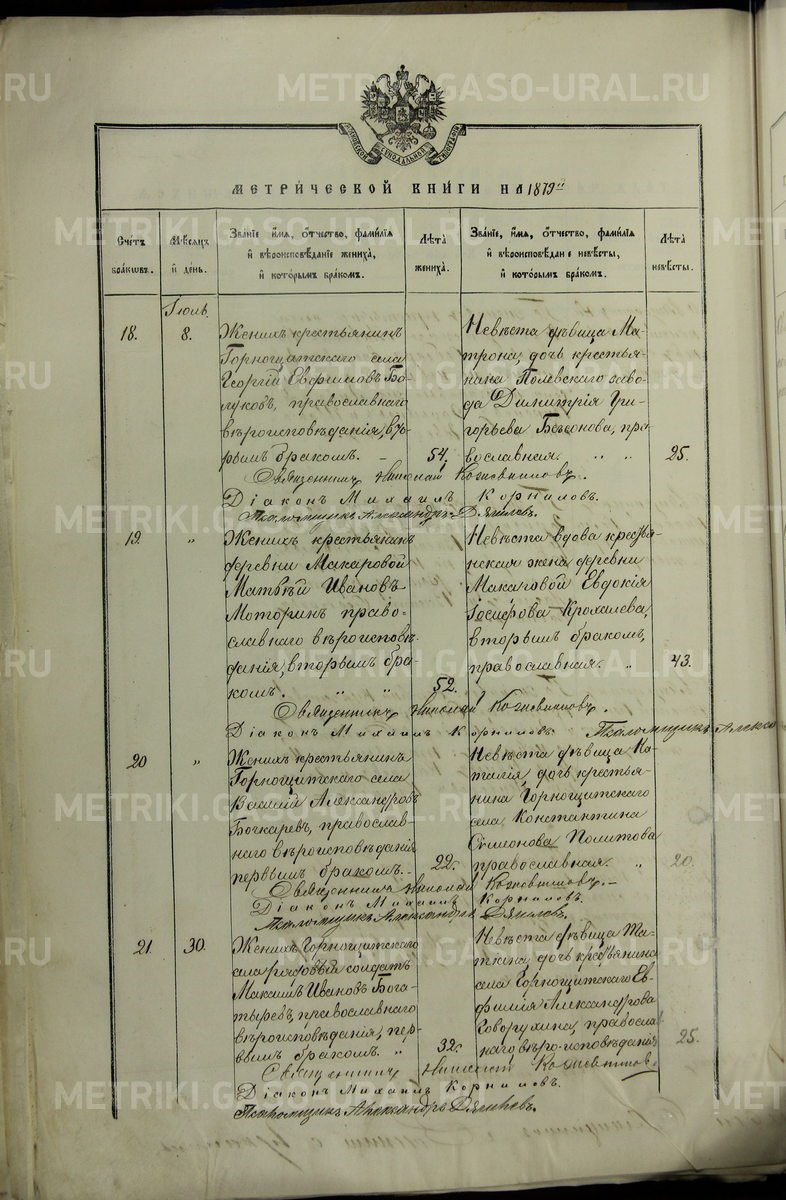 МЕТРИ́ЧЕСКОЙ КНИ́ГИ НА 1879й
Счетъ браковъ.
Мѣсяцъ й де́нь.
Зва́нїе и́мя, ѻ҆́тчество, фами́лїя й вѣроисповѣ́данїе жениха̀, й кото́рымъ бра́комъ.
Лѣ́та жениха̀.
Зва́нїе, и́мя, ѻ҆́тчество, фами́лїя й вѣроисповѣ́данїе невѣ́сты, й кото́рымъ бра́комъ.
Лѣ́та невѣ́сты.
Іюль.
18.
8.
Женихъ крестьянинъ
Горнощитскаго села
Георгій Евфимовъ Бо-
луковъ, православнаго
вѣроисповѣданія, вто-
рымъ бракомъ. –
54.
Невѣста дѣвица Ма-
трона, дочь крестья-
нина Полевскаго заво-
да Димитрія Гри-
горьева Безсонова, пра-
вославная. „ „
25.
Священникъ Николай Кожевниковъ.
Діаконъ Михаилъ Корниловъ.
Псаломщикъ Александръ Дягилевъ.
19.
„
Женихъ крестьянинъ
деревни Макаровой
Матвѣй Ивановъ
Моторинъ право-
славнаго вѣроисповѣ-
данія, вторымъ бра-
комъ. „ „
52.
Невѣста вдова крестья-
нская жена деревни
Макаровой Евдокія
Іосифова Крохалева,
вторымъ бракомъ,
православная. „
43.
Священникъ Николай Кожевниковъ.
Діаконъ Михаилъ Корниловъ. Псаломщикъ Алекса
20
„
Женихъ крестьянинъ
Горнощитскаго села
Василій Александровъ
Бочкаревъ, православ-
наго вѣроисповѣданія
первымъ бракомъ. –
22.
Невѣста дѣвица На-
талія, дочь крестья-
нина Горнощитскаго
села, Константина
Симонова Политова
православная. „
20.
Священникъ Николай Кожевниковъ. –
Діаконъ Михаилъ Корниловъ.
Псаломщикъ Александръ Дягилевъ.
21.
30.
Женихъ Горнощитскаго
села рядовый солдатъ
Максимъ Ивановъ Бога-
тыревъ, православнаго
вѣроисповѣданія, пер-
вымъ бракомъ. „
32.
Невѣста дѣвица Та-
тіана, дочь крестьянина
села Горнощитскаго Ев-
фимія Александрова
Говорухина, православ-
наго вѣро-исповѣданія
25.
Священникъ Николай Кожевниковъ.
Діаконъ Михаилъ Корниловъ.
Псаломщикъ Александръ Дягилевъ.
METRIKI.GASO-URAL.RU